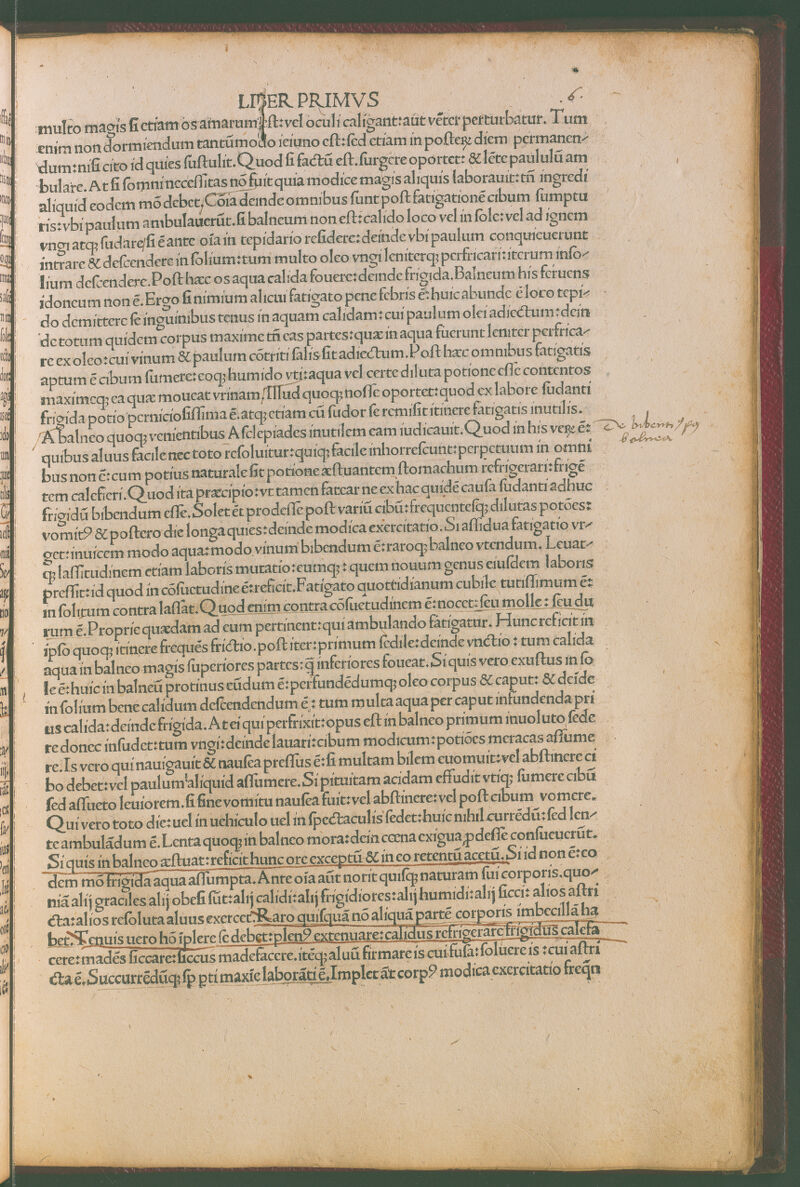 LIBER PRIMVS
.6.
multo magis ſi etiam os amarum eſt: vel oculi caligant: aūt vēter perturbatur. Tum
enim non dormiendum tantūmodo ieiuno eſt: ſed etiam in poſteꝝ diem permanen⸗
dum: niſi cito id quies ſuſtulit. Quod ſi factū eſt. ſurgere oportet: & lēte paululū am
bulare. At ſi ſomni neceſſitas nō fuit quia modice magis aliquis laborauit: tñ ingredi
aliquid eodem mō debet, Cōia deinde omnibus ſunt poſt fatigationē cibum ſumptu
ris: vbi paulum ambulauerūt. ſi balneum non eſt: calido loco vel in ſole: vel ad ignem
vngi atqꝫ ſudare/ſi ē ante oīa in tepidario reſidere: deinde vbi paulum conquieuerunt
intrare & deſcendere in ſolium: tum multo oleo vngi leniterqꝫ perfricari: iterum in ſo⸗
lium deſcendere. Poſt hæc os aqua calida fouere: deinde frigida. Balneum his feruens
idoneum non ē. Ergo ſi nimium alicui fatigato pene febris ē: huic abunde ē loco tepi⸗
do demittere ſe inguinibus tenus in aquam calidam: cui paulum olei adiectum: dein
de totum quidem corpus maxime tñ eas partes: quæ in aqua fuerunt leniter perfrica⸗
re ex oleo: cui vinum & paulum cōtriti ſalis ſit adiectum. Poſt hæc omnibus fatigatis
aptum ē cibum ſumere: eoqꝫ humido vti: aqua vel certe diluta potione eſſe contentos
maximeqꝫ ea quæ moueat vrinam/Illud quoqꝫ noſſe oportet: quod ex labore ſudanti
frigida potio pernicioſiſſima ē. atqꝫ etiam cū ſudor ſe remiſit itinere fatigatis inutilis.
/A balneo quoqꝫ venientibus Aſclepiades inutilem eam iudicauit. Quod in his veꝝ ē:
quibus aluus facile nec toto reſoluitur: quiqꝫ facile inhorreſcunt: perpetuum in omni
bus non ē: cum potius naturale ſit potione æſtuantem ſtomachum refrigerari: frigē
tem calefieri. Quod ita præcipio: vt tamen fatear ne ex hac quidē cauſa ſudanti adhuc
frigidū bibendum eſſe. Solet ēt prodeſſe poſt variū cibū: frequenteſqꝫ dilutas potōes:
vomitꝰ & poſtero die longa quies: deinde modica exercitatio. Si aſſidua fatigatio vr⸗
get: inuicem modo aqua: modo vinum bibendum ē: raroqꝫ balneo vtendum. Leuat⸗
qꝫ laſſitudinem etiam laboris mutatio: eumqꝫ: quem nouum genus eiuſdem laboris
preſſit: id quod in cōſuetudine ē: reficit. Fatigato quottidianum cubile tutiſſimum ē:
in ſolitum contra laſſat. Quod enim contra cōſuetudinem ē: nocet: ſeu molle: ſeu du
rum ē. Proprie quædam ad eum pertinent: qui ambulando fatigatur. Hunc reficit in
ipſo quoqꝫ itinere frequēs frictio. poſt iter: primum ſedile: deinde vnctio: tum calida
aqua in balneo magis ſuperiores partes: q̄ inferiores foueat. Si quis vero exuſtus in ſo
le ē: huic in balneū protinus eūdum ē: perfundēdumqꝫ oleo corpus & caput: & deīde
in ſolium bene calidum deſcendendum ē: tum multa aqua per caput infundenda pri
us calida: deinde frigida. At ei qui perfrixit: opus eſt in balneo primum inuoluto ſede
re donec inſudet: tum vngi: deinde lauari: cibum modicum: potiōes meracas aſſume
re. Is vero qui nauigauit & nauſea preſſus ē: ſi multam bilem euomuit: vel abſtinere ci
bo debet: vel paulum aliquid aſſumere. Si pituitam acidam effudit vtiqꝫ ſumere cibū
ſed aſſueto leuiorem. ſi ſine vomitu nauſea fuit: vel abſtinere: vel poſt cibum vomere.
Qui vero toto die: uel in uehiculo uel in ſpectaculis ſedet: huic nihil currēdū: ſed len⸗
te ambulādum ē. Lenta quoqꝫ in balneo mora: dein cœna exigua ꝓdeſſe conſueuerūt.
Si quis in balneo æſtuat: reficit hunc ore exceptū & in eo retentū acetū. Si id non ē: eo
dem mō frigida aqua aſſumpta. Ante oīa aūt norit quiſqꝫ naturam ſui corporis. quo⸗
niā alij graciles alij obeſi ſūt: alij calidi: alij frigidiores: alij humidi: alij ſicci: alios aſtri
cta: alios reſoluta aluus exercet. Raro quiſquā nō aliquā partē corporis imbecillā ha
bet. Tenuis uero hō īplere ſe debet: plenꝰ extenuare: calidus refrigerare frigidus calefa
cere: madēs ſiccare: ſiccus madefacere. itēqꝫ aluū firmare is cui fuſa: ſoluere is: cui aſtri
cta ē. Succurrēdūqꝫ ſꝑ pti maxīe laborāti ē. Implet āt corpꝰ modica exercitatio freq̄n
De
balnea